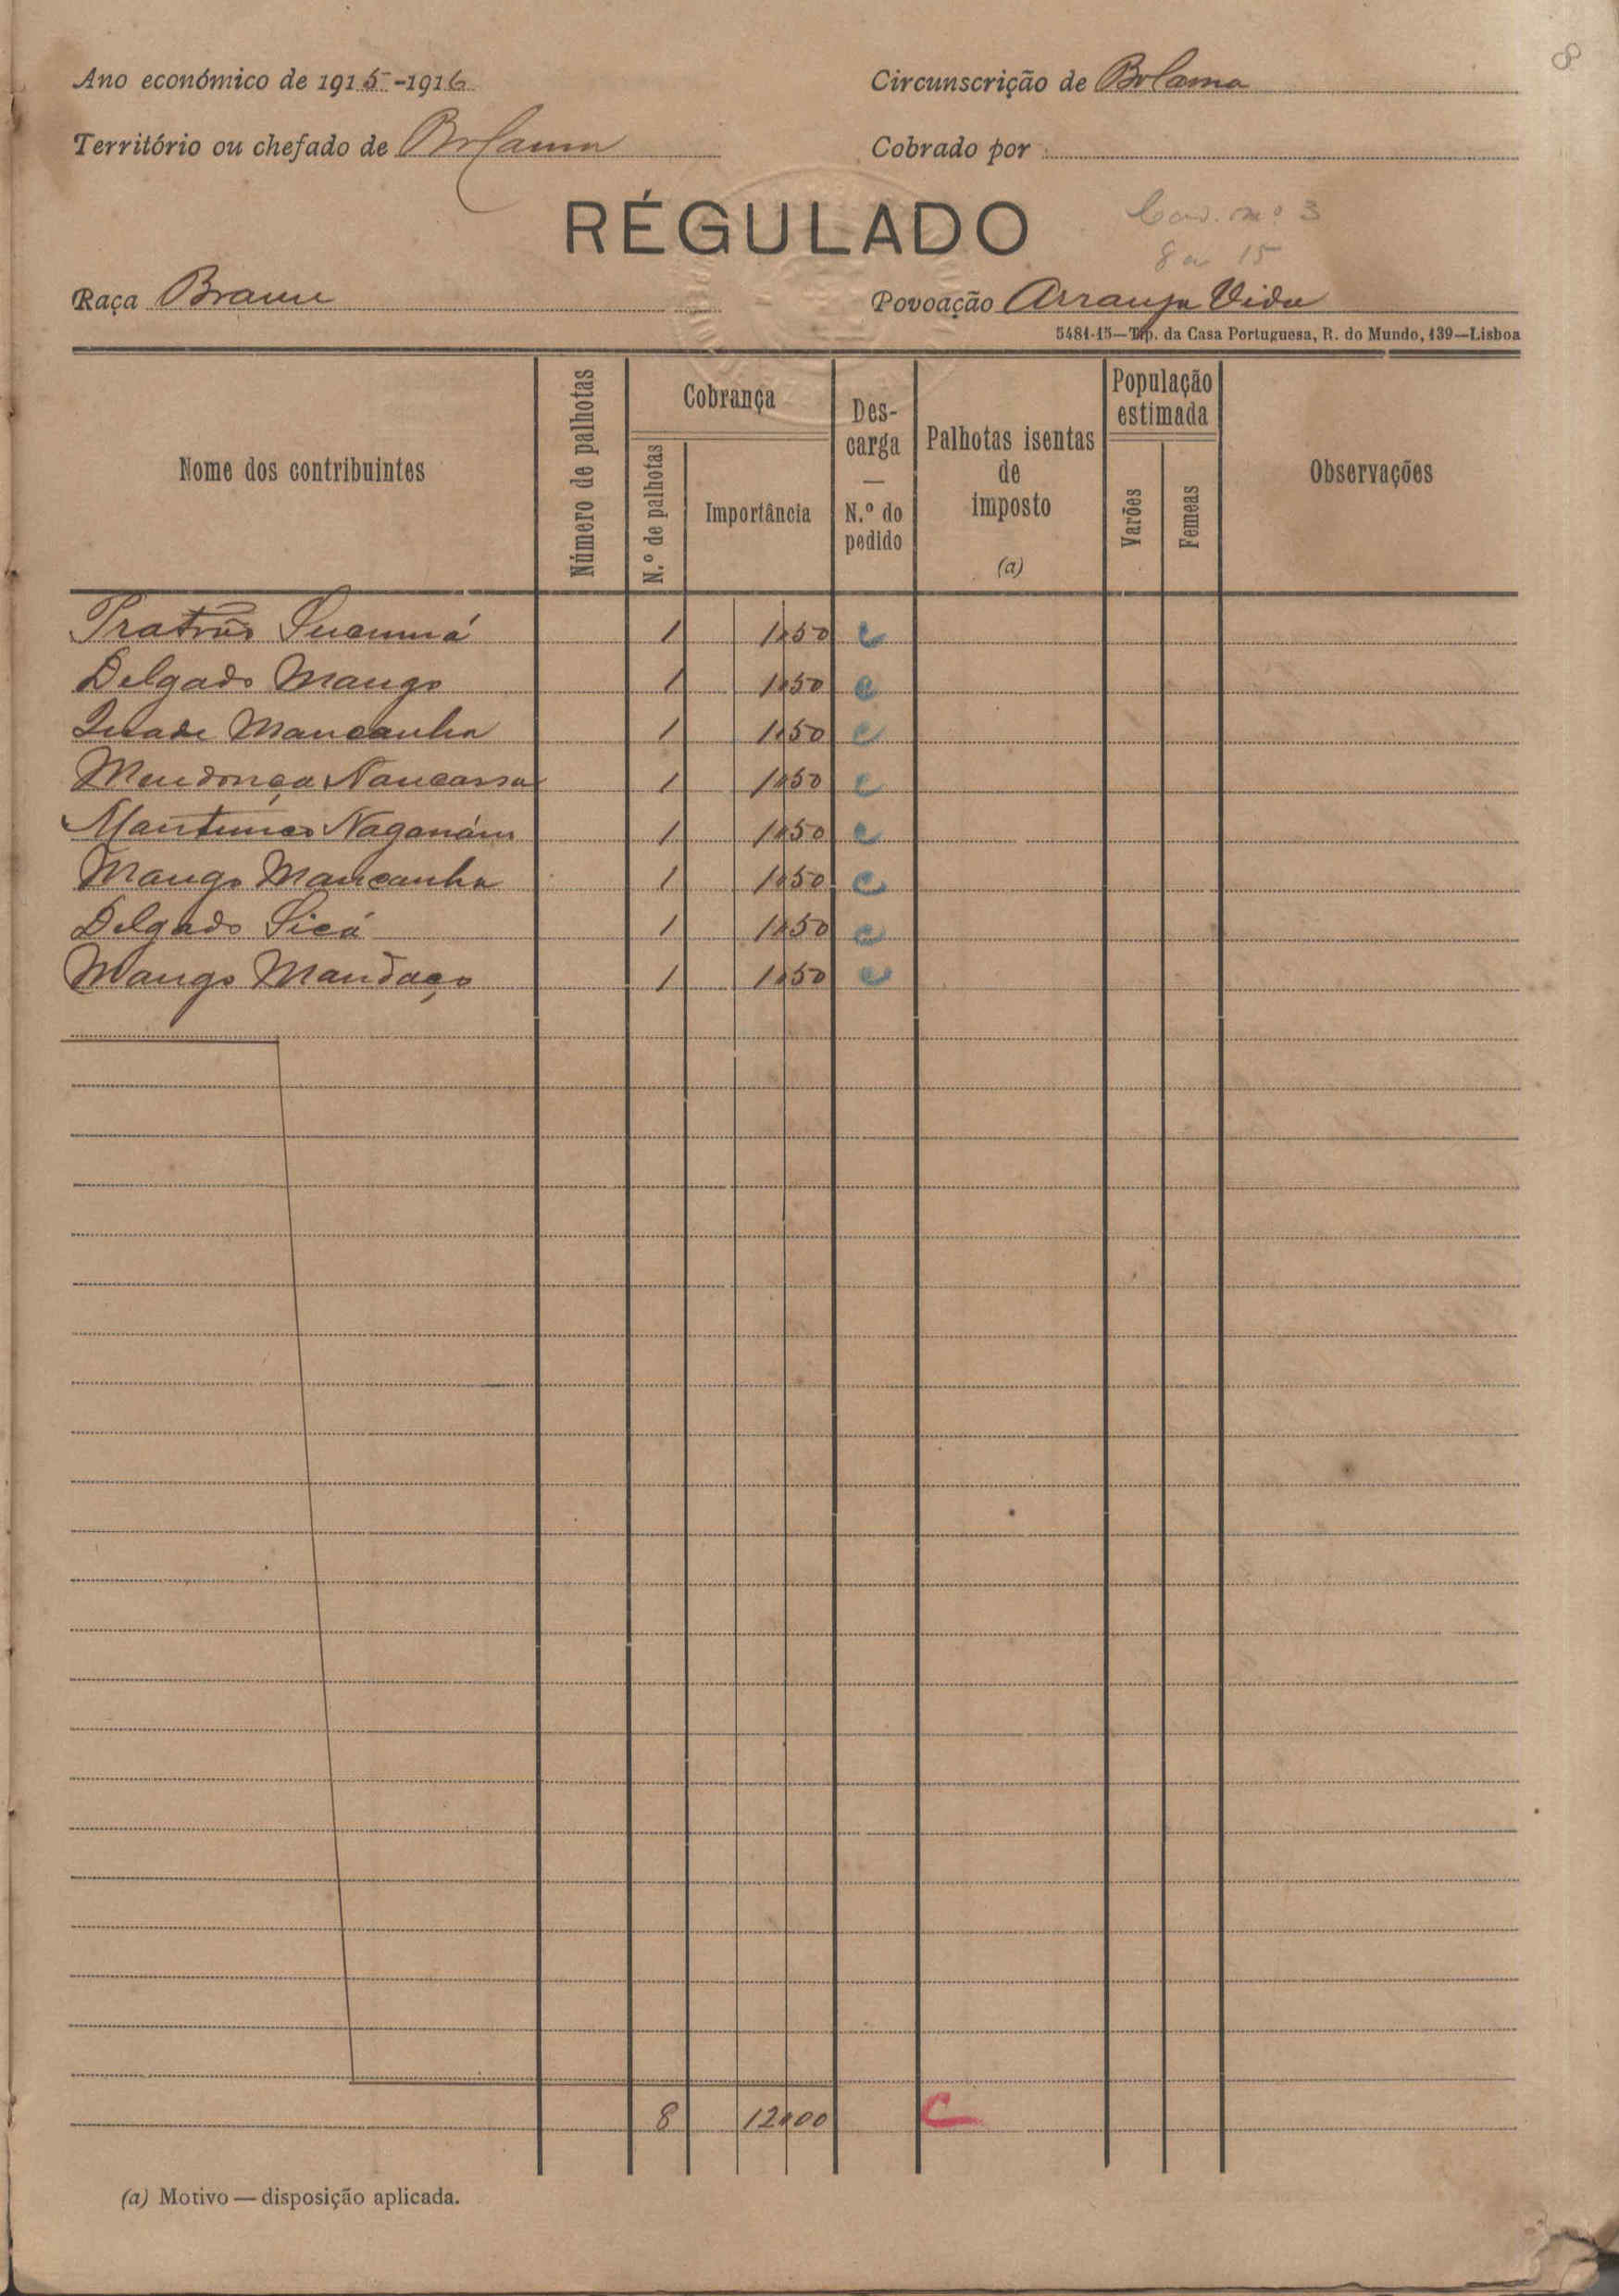 8
Ano económico de 1915-1916 Circunscrição de Bolama
Território ou chefado de Bolama Cobrado por
RÉGULADO
nº 3
8 a 15
Raça Brame Povoação Arranja Vida
5481-15—Tip. da Casa Portuguesa, R. do Mundo, 139—Lisboa
Nome dos contribuintes Número de palhotas Cobrança N.º de palhotas Importância Descarga — N.º do pedido Palhotas isentas de imposto (a) População estimada Varões Femeas Observações
1 1$50 c
Delgado Mango 1 1$50 c
Mancanha 1 1$50 c
Mendonça Nancassa 1 1$50 c
1 1$50 c
Mango Mancanha 1 1$50 c
Delgado Sicá 1 1$50 c
Mango Mandaço 1 1$50 c
8 12$00 C
(a) Motivo — disposição aplicada.